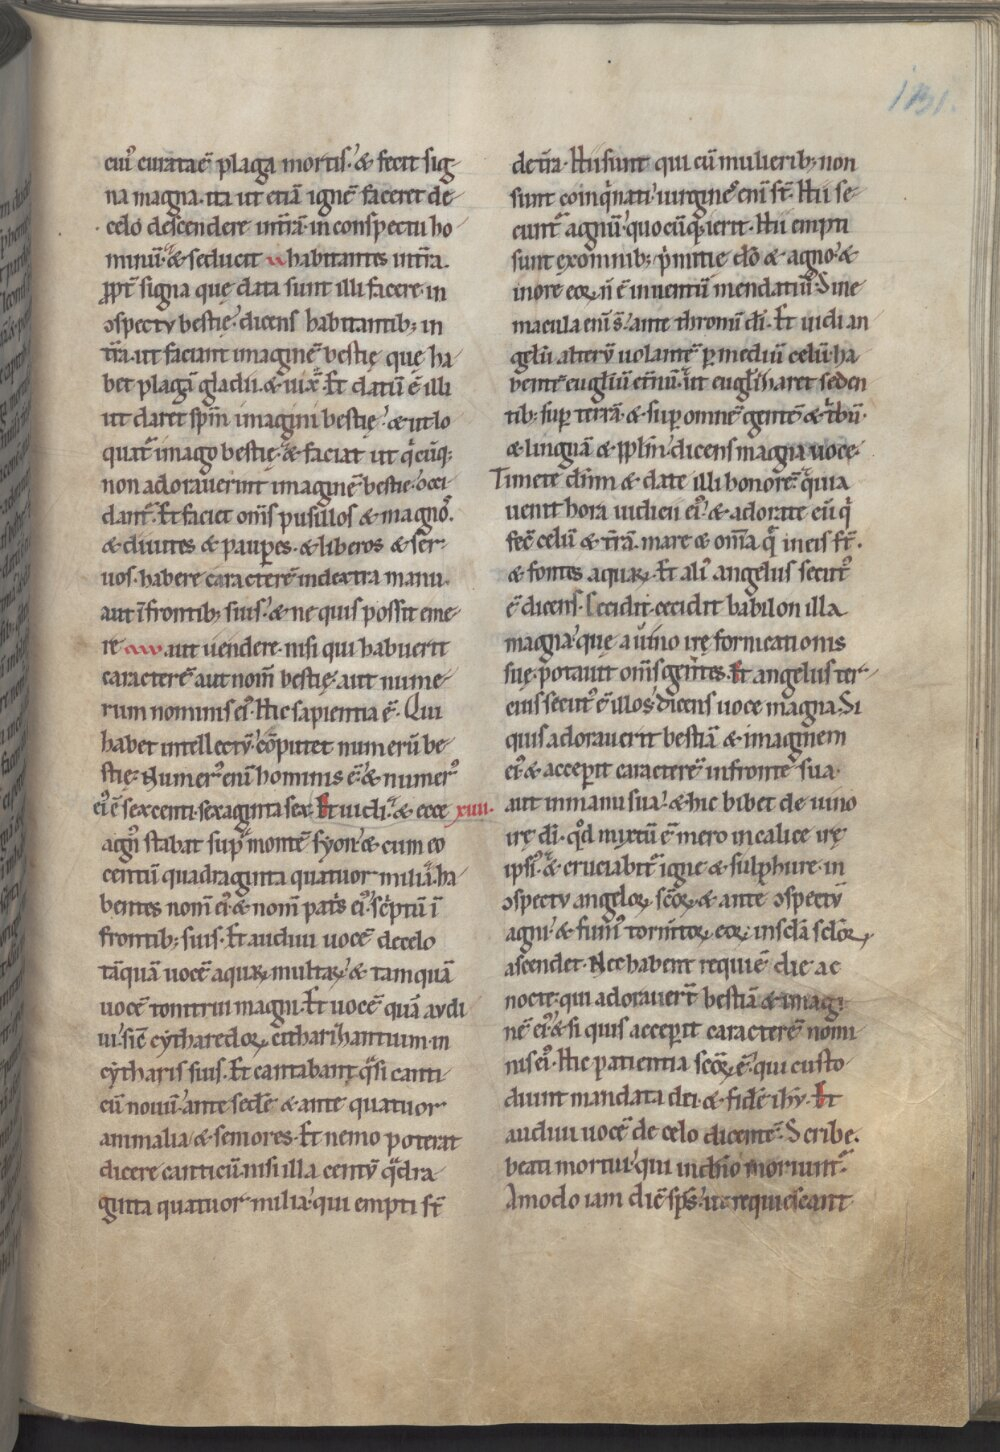 131.
cui' curata ē plaga mortis. & fecit sig
na magna. ita ut etiā ignē faceret de
celo descendere in tr̄ā in conspectu ho
minū. & seducit habitantes in tr̄a.
ꝓpt̄ signa que data sunt illi facere in
ↄspectu bestię. dicens habitantib; in
tr̄a. ut faciant imaginē bestię que ha
bet plagā gladii. & uix̄. Et datū ē illi
ut daret sp̄m imagini bestię. & ut lo
quat᷑ imago bestię. & faciat ut q̄cūq;
non adorauerint imaginē bestie. occi
dant᷑. Et faciet om̄s pusillos & magno'.
& diuites & pauꝑes. & liberos & ser
uos. habere caracterē in dextra manu.
aut ī frontib; suis. & ne quis possit eme
re aut uendere. nisi qui habuerit
caracterē aut nom̄ bestię. aut nume
rum nominis ei'. Hic sapientia ē. Qui
habet intellectū. cōputet numerū be
stię. Numer' enī hominis ē. & numer'
ei' ē sexcenti sexaginta sex. Et uidi. & ecce xiiii.
agn' stabat sup̄ montē syon. & cum eo
centū quadraginta quatuor milia. ha
bentes nom̄ ei' & nom̄ patˢ ei' sc̄ptū ī
frontib; suis. Et audiui uocē de celo
tāquā uocē aquaꝝ multaꝝ. & tamquā
uocē tonitrui magni. Et uocē quā audi
ui. sic̄ cytharedoꝝ citharizantium in
cytharis suis. Et cantabant q̄si canti
cū nouū. ante sedē & ante quatuor
animalia & seniores. Et nemo poterat
dicere canticū. nisi illa centū q̄dra
ginta quatuor milia. qui empti st̄
de tr̄a. Hii sunt qui cū mulierib; non
sunt coinq̄nati. uirgine' enī st̄. Hii se
cunt᷑ agnū. quocūq; ierit. Hii empti
sunt ex omnib; p̄mitie dō & agno. &
in ore eoꝝ n̄ ē inuentū mendatiū. Sine
macula enī s̄. ante thronū dī. Et uidi an
gelū alterū uolantē ꝑ mediū celū. ha
bentē eugl̄iū et̄nū. ut eugl̄izaret seden
tib; sup terrā. & sup omnē gentē & tˢbū.
& linguā & ppl̄m. dicens magna uoce.
Timete dn̄m & date illi honorē. quia
uenit hora iudicii ei'. & adorate eū q̄
fec̄ celū & tr̄ā. mare & om̄a q̄ in eis st̄.
& fontes aquaꝝ. Et ali' angelus secut'
ē dicens. Cecidit cecidit babilon illa
magna. que a uino irę fornicationis
suę. potauit om̄s gentes. Et angelus ter
cius secut' ē illos. dicens uoce magna. Si
quis adorauerit bestiā & imaginem
ei'. & acceperit caracterē in fronte sua.
aut in manu sua. & hic bibet de uino
irę dī. qd̄ mixtū ē mero in calice irę
ipsi'. & cruciabit᷑ igne & sulphure in
ↄspectu angeloꝝ sc̄oꝝ. & ante ↄspectū
agni. & fum' tormtoꝝ eoꝝ in scl̄a scl̄oꝝ
ascendet. Nec habent requiē die ac
nocte. qui adorauer̄t bestiā & imagi
nē ei'. & si quis acceꝑit caracterē nomi
nis ei'. Hic patientia sc̄oꝝ ē. qui custo
diunt mandata dei. & fidē ihu. Et
audiui uocē de celo dicentē. Scribe.
beati mortui. qui in dn̄o moriunt᷑.
Amodo iam dic̄ sp̄s. ut requiescant